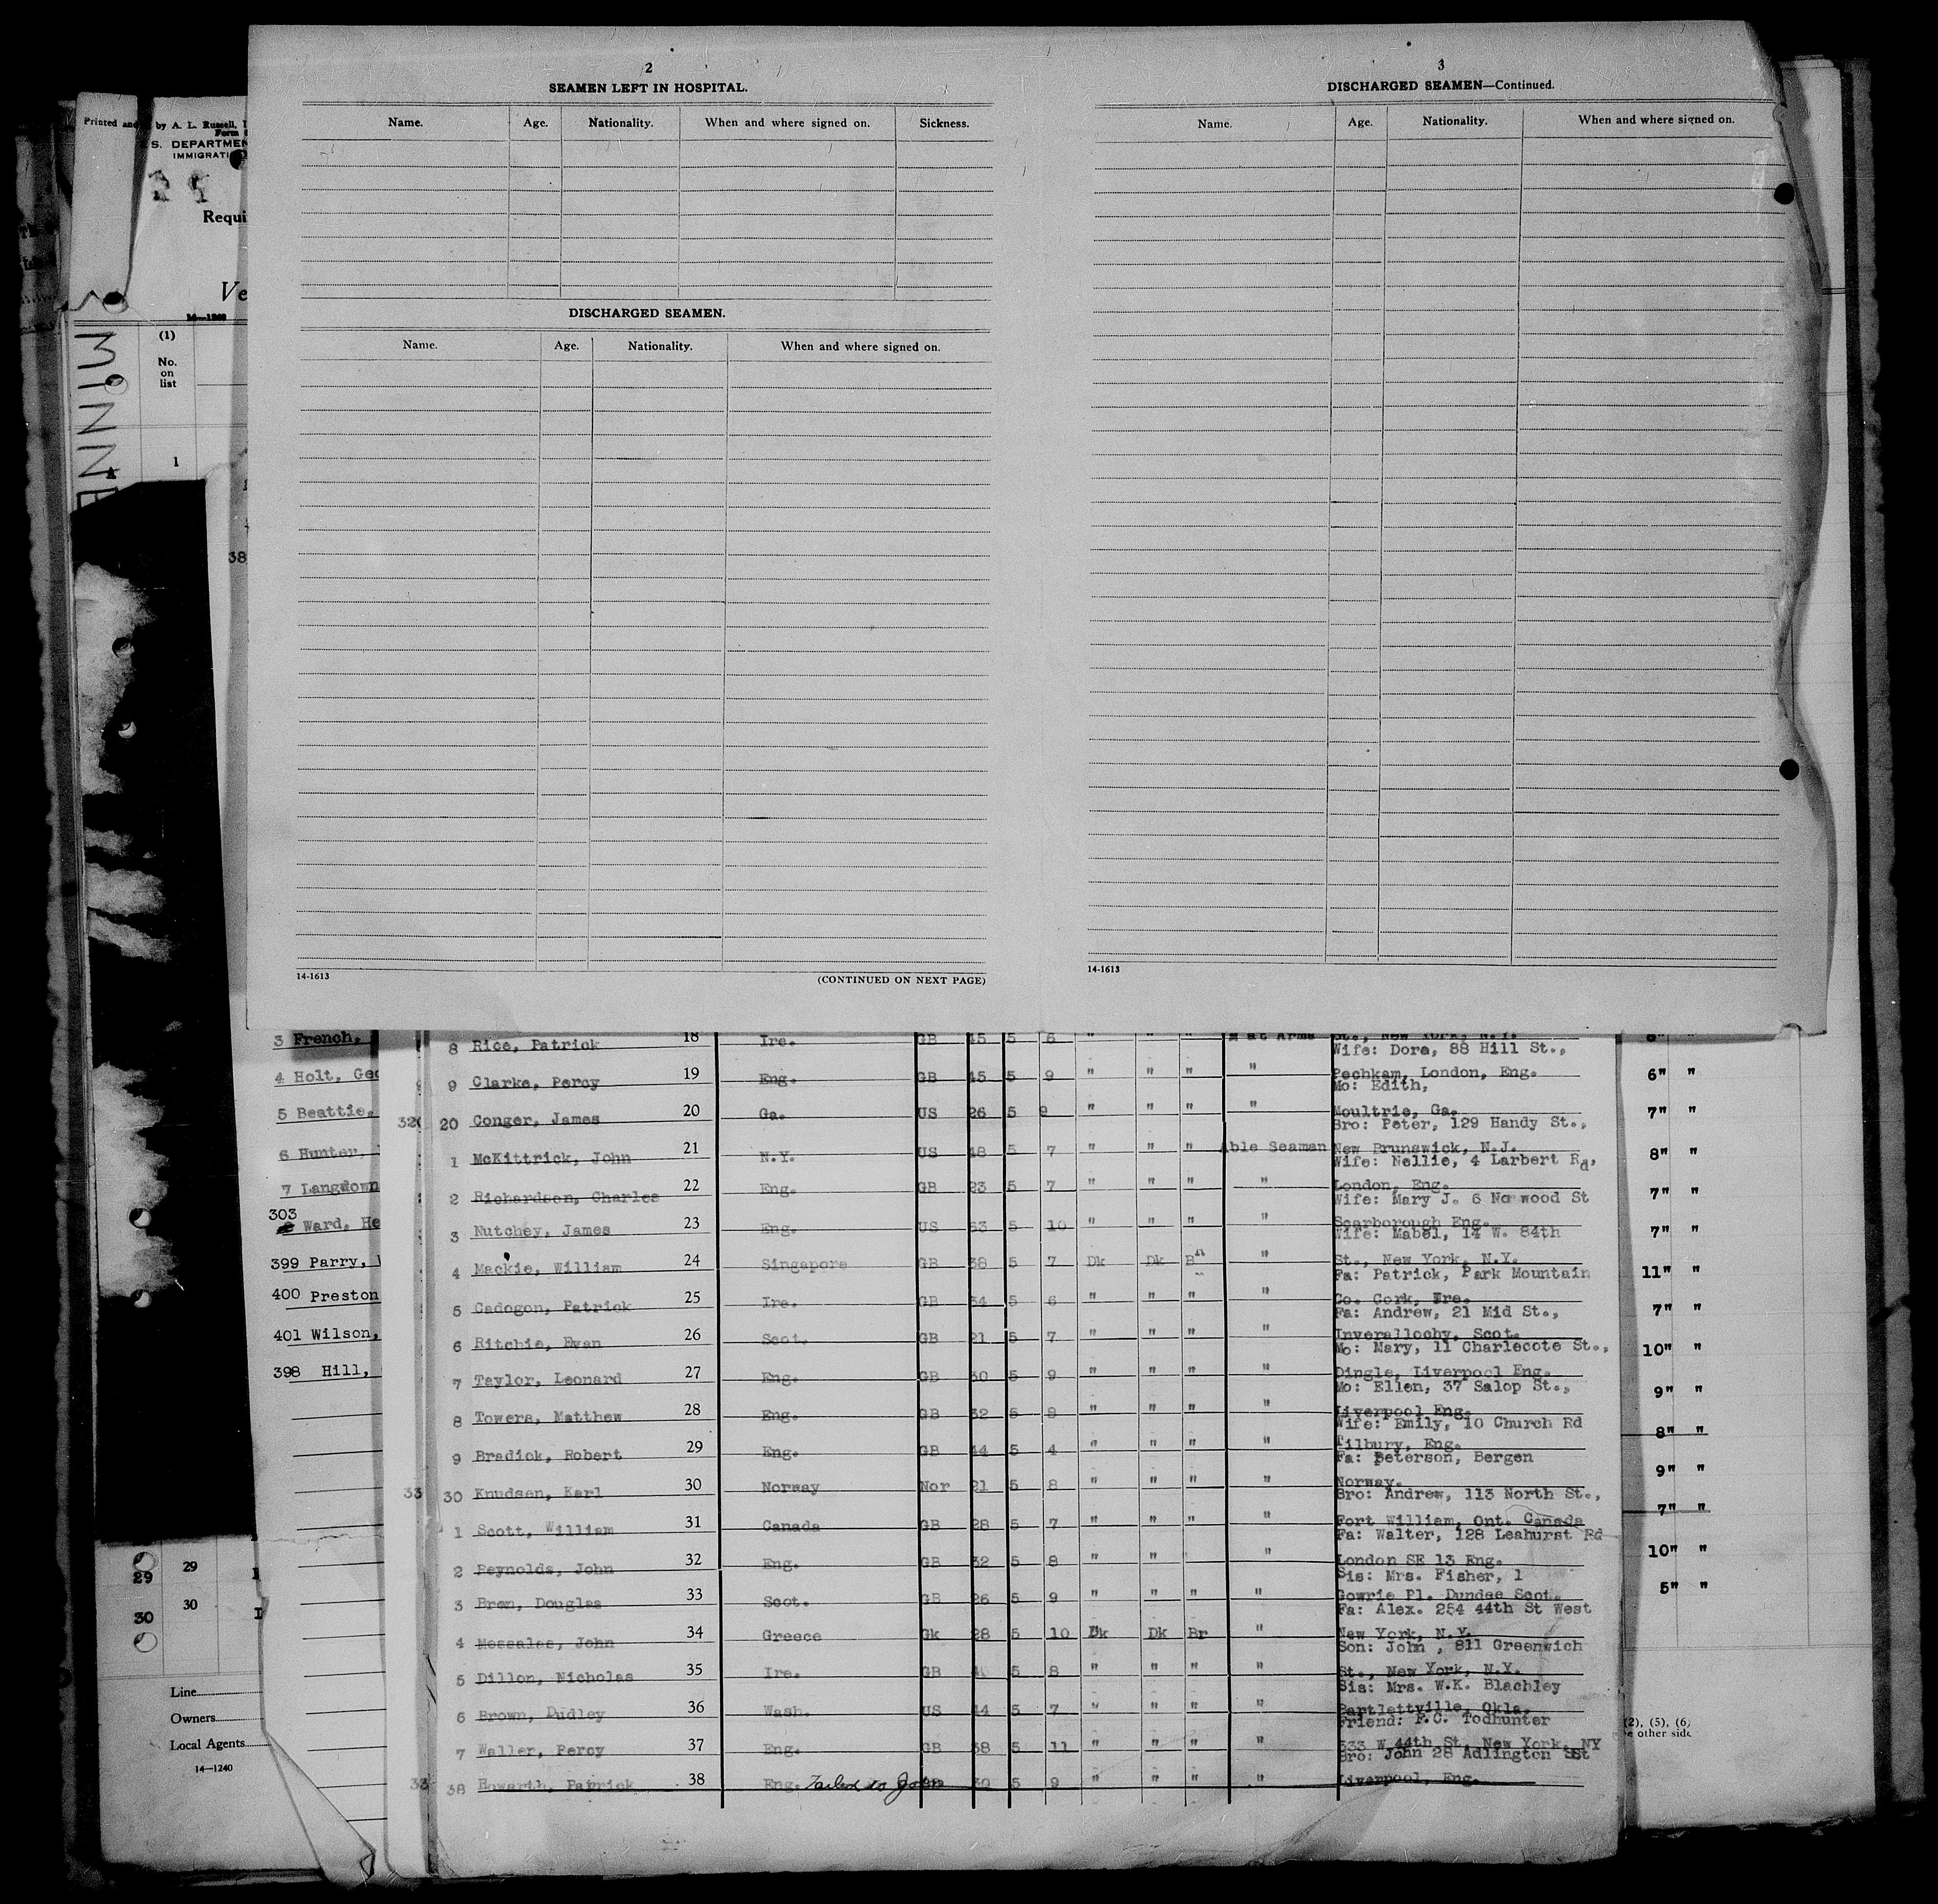 2
SEAMEN LEFT IN HOSPITAL.
Name. Age. Nationality. When and where signed on. Sickness.
DISCHARGED SEAMEN.
Name. Age. Nationality. When and where signed on.
14-1613 (CONTINUED ON NEXT PAGE)
3
DISCHARGED SEAMEN—Continued.
Name. Age. Nationality. When and where signed on.
14-1613
Printed and by A. L. Russell,
Form
S. DEPARTMEN
IMMIGRATI
Requi
Ve
14—1240
MINNE
(1)
No.
on
list
1
38
3 French,
4 Holt, Geo
5 Beattie,
6 Hunter,
7 Langdown
303
Ward, He
399 Parry,
400 Preston
401 Wilson,
398 Hill,
29 29
30 30
Line
Owners
Local Agents
14—1240
St., New York, N.Y.
8 Rice, Patrick 18 Ire. GB 45 5 6 " " " M at Arms
Wife: Dora, 88 Hill St.,
9 Clarke, Percy 19 Eng. GB 45 5 9 " " " " Pechkam, London, Eng. 6" "
Mo: Edith,
320 20 Conger, James 20 Ga. US 26 5 9 " " " " Moultrie, Ga. 7" "
Bro: Peter, 129 Handy St.,
1 McKittrick, John 21 N.Y. US 48 5 7 " " " Able Seaman New Brunswick, N.J. 8" "
Wife: Nellie, 4 Larbert Rd,
2 Richardson, Charles 22 Eng. GB 23 5 7 " " " " London, Eng. 7" "
Wife: Mary J. 6 Norwood St
3 Nutchey, James 23 Eng. US 53 5 10 " " " " Scarborough Eng. 7" "
Wife: Mabel, 14 W. 84th
4 Mackie, William 24 Singapore GB 38 5 7 Dk Dk Bn " St., New York, N.Y. 11" "
Fa: Patrick, Park Mountain
5 Cadogon, Patrick 25 Ire. GB 34 5 6 " " " " Co. Cork, Ire. 7" "
Fa: Andrew, 21 Mid St.,
6 Ritchie, Ewan 26 Scot. GB 21 5 7 " " " " Inverallochy, Scot. 10" "
Mo: Mary, 11 Charlecote St.,
7 Taylor, Leonard 27 Eng. GB 30 5 9 " " " " Dingle, Liverpool Eng. 9" "
Mo: Ellen, 37 Salop St.,
8 Towers, Matthew 28 Eng. GB 32 5 8 " " " " Liverpool Eng. 8" "
Wife: Emily, 10 Church Rd
9 Bradick, Robert 29 Eng. GB 44 5 4 " " " " Tilbury, Eng. 9" "
Fa: Peterson, Bergen
33 30 Knudsen, Karl 30 Norway Nor 21 5 8 " " " " Norway. 7" "
Bro: Andrew, 113 North St.,
1 Scott, William 31 Canada GB 28 5 7 " " " " Fort William, Ont. Canada 10" "
Fa: Walter, 128 Leahurst Rd
2 Reynolds, John 32 Eng. GB 32 5 8 " " " London SE 13 Eng. 5" "
Sis: Mrs. Fisher, 1
3 Bron, Douglas 33 Scot. GB 26 5 9 " " " " Gowrie Pl. Dundee Scot.
Fa: Alex. 254 44th St West
4 Messales, John 34 Greece Gk 28 5 10 Dk Dk Br " New York, N.Y.
Son: John , 811 Greenwich
5 Dillon, Nicholas 35 Ire. GB 5 8 " " " " St., New York, N.Y.
Sis: Mrs. W.K. Blachley
6 Brown, Dudley 36 Wash. US 44 5 7 " " " " Bartlettville, Okla.
Friend: F.C. Todhunter
7 Waller, Percy 37 Eng. GB 38 5 11 " " " " 333 W 44th St, New York, NY
Bro: John 28 Adlington St
33 38 Howarth, Patrick 38 Eng. Failed to Join 30 5 9 " " " " Liverpool, Eng.
(2), (5), (6)
e other side